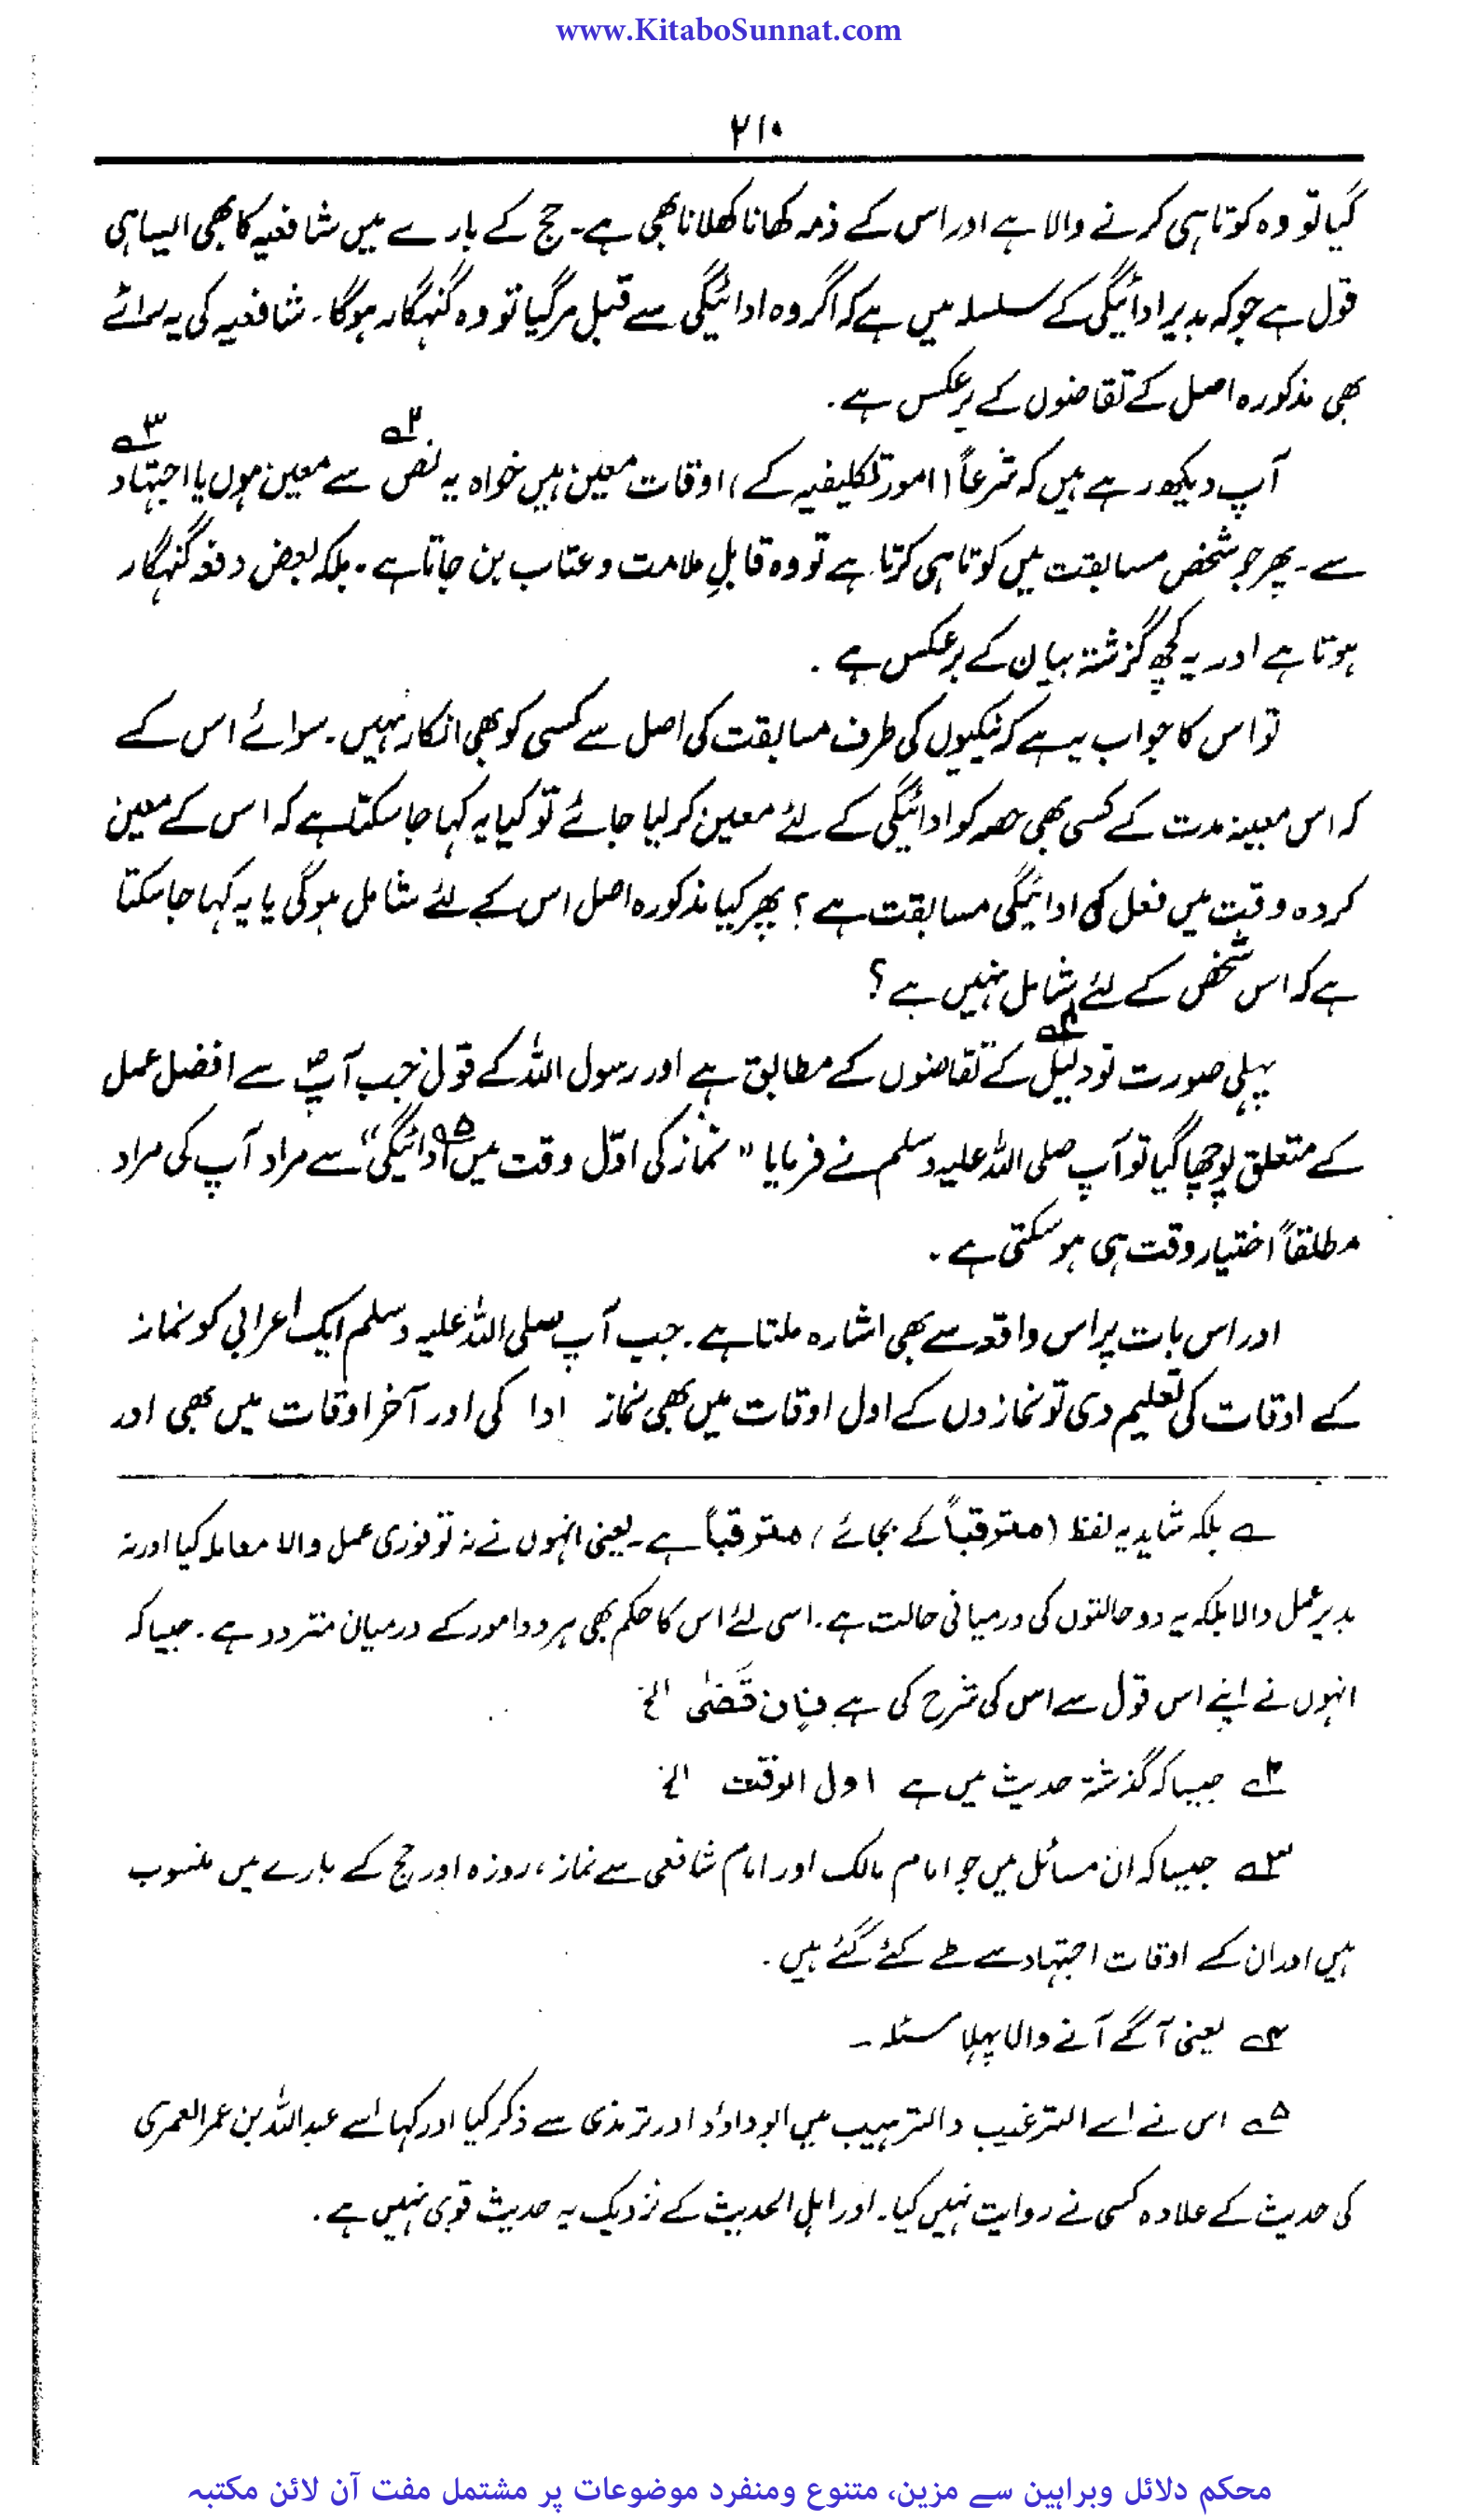 www.KitaboSunnat.com
۲۱۰
گیا تو وہ کوتاہی کرنے والا ہے اور اس کے ذمہ کھانا کھلانا بھی ہے۔ حج کے بارے میں شافعیہ کا بھی ایسا ہی
قول ہے جو کہ بدیر ادائیگی کے سلسلہ میں ہے کہ اگر وہ ادائیگی سے قبل مر گیا تو وہ گنہگار ہوگا۔ شافعیہ کی یہ رائے
بھی مذکورہ اصل کے تقاضوں کے برعکس ہے۔
آپ دیکھ رہے ہیں کہ شرعاً (امور تکلیفیہ کے) اوقات معین ہیں خواہ یہ نص۲؎ سے معین ہوں یا اجتہاد۳؎
سے۔ پھر جو شخص مسابقت میں کوتاہی کرتا ہے تو وہ قابلِ ملامت و عتاب بن جاتا ہے۔ بلکہ بعض دفعہ گنہگار
ہوتا ہے اور یہ کچھ گزشتہ بیان کے برعکس ہے۔
تو اس کا جواب یہ ہے کہ نیکیوں کی طرف مسابقت کی اصل سے کسی کو بھی انکار نہیں۔ سوائے اس کے
کہ اس معینہ مدت کے کسی بھی حصہ کو ادائیگی کے لئے معین کر لیا جائے تو کیا یہ کہا جا سکتا ہے کہ اس کے معین
کردہ وقت میں فعل کی ادائیگی مسابقت ہے؟ پھر کیا مذکورہ اصل اس کے لئے شامل ہوگی یا یہ کہا جا سکتا
ہے کہ اس شخص کے لئے شامل نہیں ہے؟
پہلی صورت تو دلیل۴؎ کے تقاضوں کے مطابق ہے اور رسول اللہ کے قول جب آپؐ سے افضل عمل
کے متعلق پوچھا گیا تو آپ صلی اللہ علیہ وسلم نے فرمایا "نماز کی اوّل وقت میں ادائیگی"۵؎ سے مراد آپ کی مراد
مطلقاً اختیار وقت ہی ہو سکتی ہے۔
اور اس بات پر اس واقعہ سے بھی اشارہ ملتا ہے۔ جب آپ صلی اللہ علیہ وسلم ایک اعرابی کو نماز
کے اوقات کی تعلیم دی تو نمازوں کے اول اوقات میں بھی نماز ادا کی اور آخر اوقات میں بھی اور
؎ بلکہ شاید یہ لفظ (مترقباً کے بجائے) مترقباً ہے۔ یعنی انہوں نے نہ تو فوری عمل والا معاملہ کیا اور نہ
بدیر عمل والا بلکہ یہ دو حالتوں کی درمیانی حالت ہے۔ اسی لئے اس کا حکم بھی ہر دو امور کے درمیان متردد ہے۔ جیسا کہ
انہوں نے اپنے اس قول سے اس کی شرح کی ہے فإن قَضٰی الخ
۲؎ جیسا کہ گذشتہ حدیث میں ہے اول الوقت الخ
۳؎ جیسا کہ ان مسائل میں جو امام مالک اور امام شافعی سے نماز، روزہ اور حج کے بارے میں منسوب
ہیں اور ان کے اوقات اجتہاد سے طے کئے گئے ہیں۔
۴؎ یعنی آگے آنے والا پہلا مسئلہ۔
۵؎ اس نے اسے الترغیب والترہیب میں ابو داؤد اور ترمذی سے ذکر کیا اور کہا اسے عبداللہ بن عمر العمری
کی حدیث کے علاوہ کسی نے روایت نہیں کیا۔ اور اہل الحدیث کے نزدیک یہ حدیث قوی نہیں ہے۔
محکم دلائل وبراہین سے مزین، متنوع ومنفرد موضوعات پر مشتمل مفت آن لائن مکتبہ